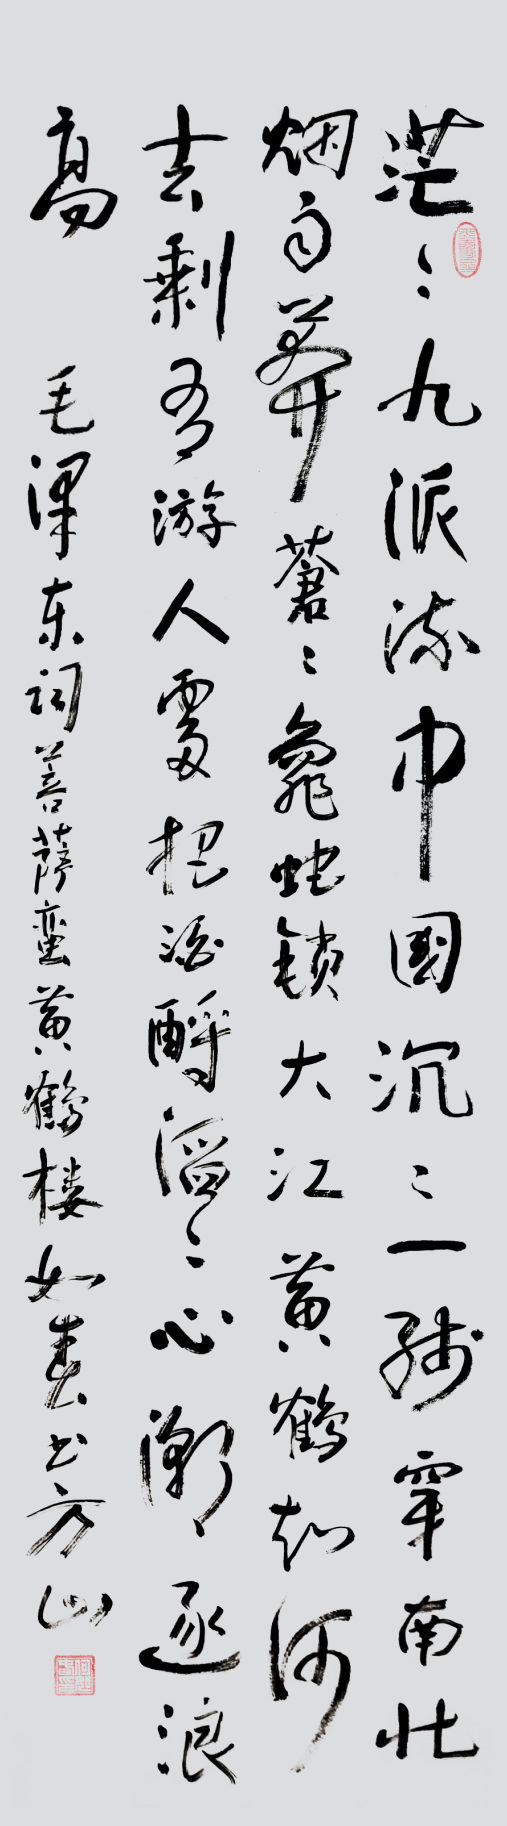 茫〻九派流中國沉〻一线穿南北
烟雨莽蒼〻龜蛇锁大江黄鹤知何
去剩有游人處把酒酹滔〻心潮〻逐浪
高 毛泽东词菩萨蛮黄鹤楼 如春书方山